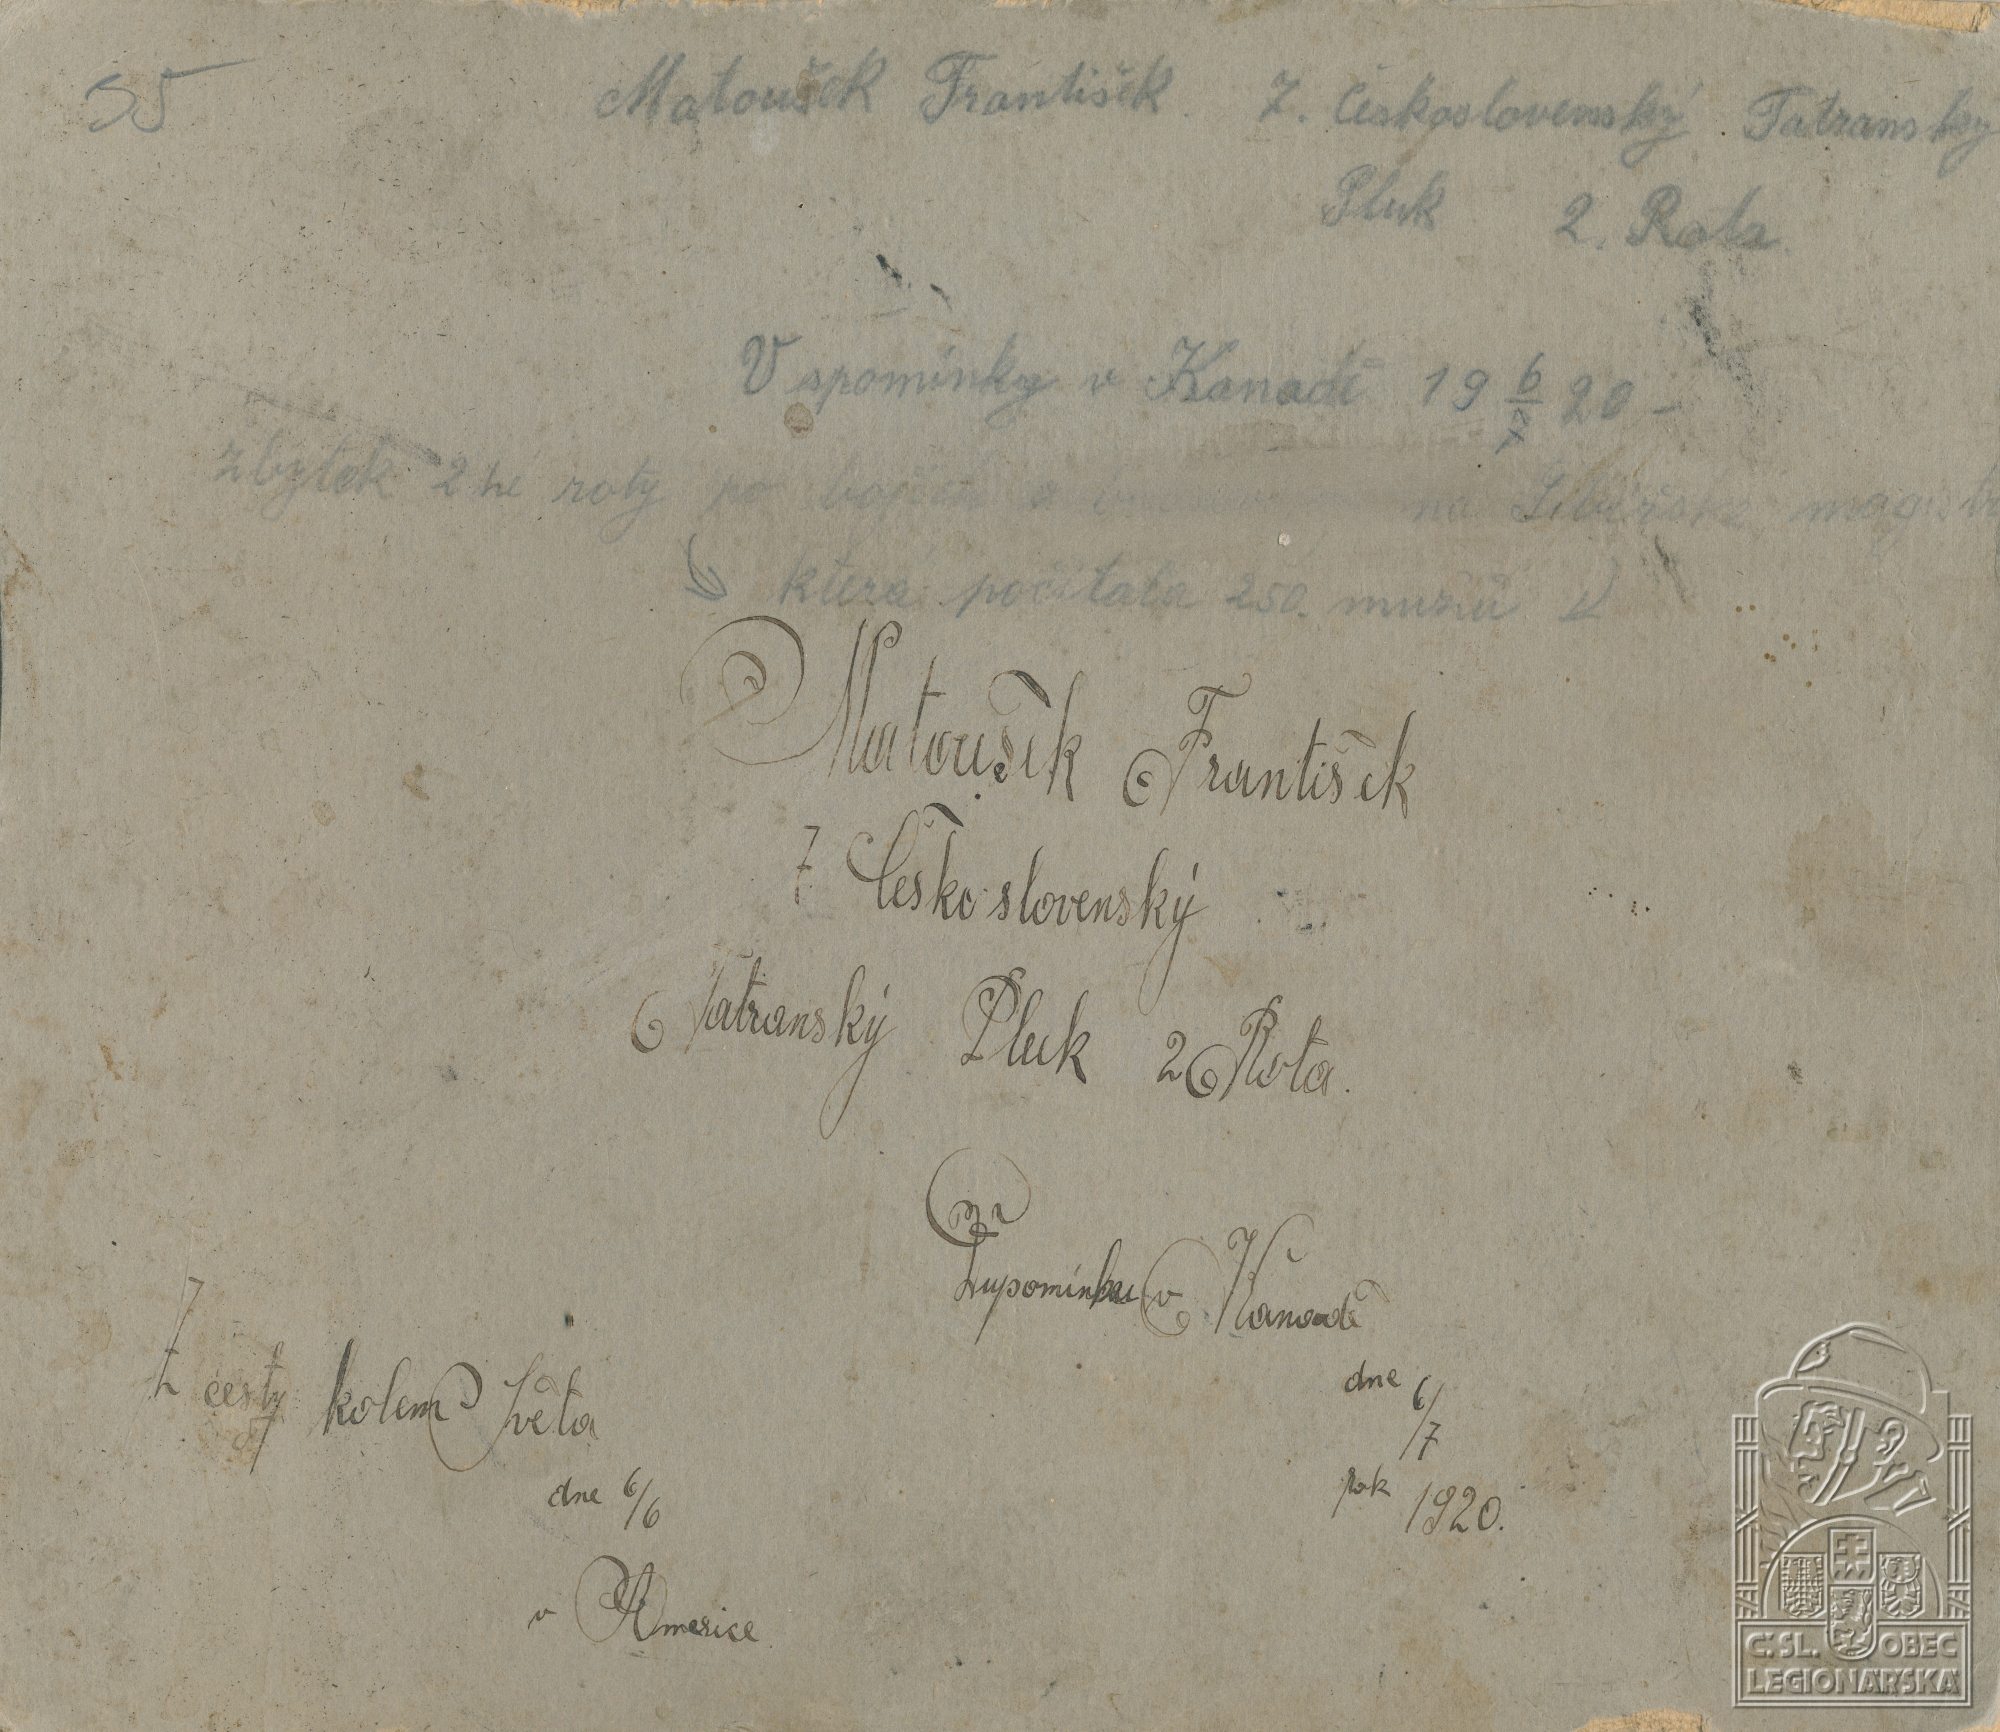 55 Matoušek František. 7. Československý Tatranský
Pluk 2. Rota.
Vspomínky v Kanadě 19 6/7 20 –
zbytek 2hé roty po bojích a na Sibiřské magistr
která počítala 250. mužů
Matoušek František
7 Česko slovenský
Tatranský Pluk 2 Rota.
Na
Zupomínku v Kanadě
dne 6/7
rok 1920.
Z cesty kolem Světa
dne 6/6
v Americe
Č.SL. OBEC
LEGIONÁŘSKÁ